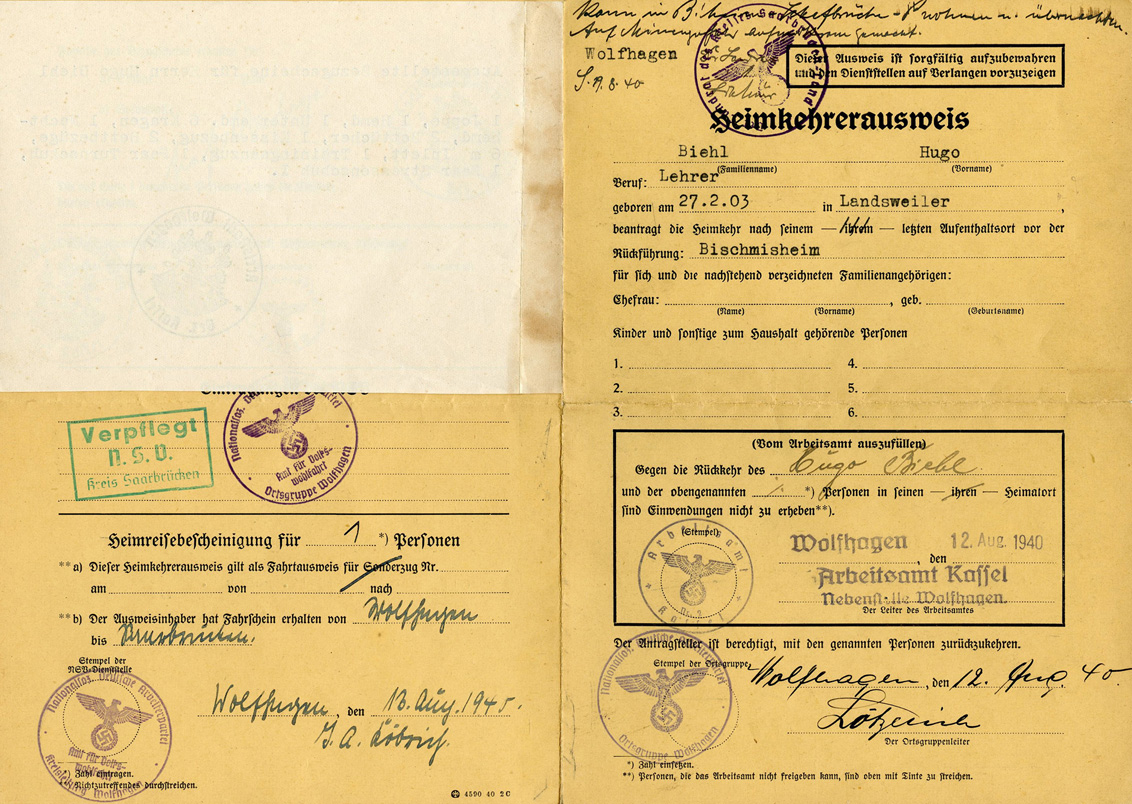 Verpflegt
N.S.V.
Kreis Saarbrücken
Nationalsoz. Deutsche Arbeiterpartei
Amt für Volks-
wohlfahrt
Ortsgruppe Wolfhagen
Heimreisebescheinigung für 1 *) Personen
**a) Dieser Heimkehrerausweis gilt als Fahrtausweis für Sonderzug Nr.
am von nach
**b) Der Ausweisinhaber hat Fahrschein erhalten von Wolfhagen
bis Saarbrücken.
Stempel der
NSV-Dienststelle
Wolfhagen, den 13. Aug. 1940.
J. A.
Nationalsoz. Deutsche Arbeiterpartei
Amt für Volks-
wohlfahrt
Kreisleitung Wolfhagen
*) Zahl eintragen.
**) Nichtzutreffendes durchstreichen.
4590 40 2C
Kann in
Auf
Wolfhagen
Dieser Ausweis ist sorgfältig aufzubewahren
und den Dienststellen auf Verlangen vorzuzeigen
Heimkehrerausweis
Biehl Hugo
(Familienname) (Vorname)
Beruf: Lehrer
geboren am 27.2.03 in Landsweiler,
beantragt die Heimkehr nach seinem — ihrem — letzten Aufenthaltsort vor der
Rückführung: Bischmisheim
für sich und die nachstehend verzeichneten Familienangehörigen:
Ehefrau: , geb.
(Name) (Vorname) (Geburtsname)
Kinder und sonstige zum Haushalt gehörende Personen
1. 4.
2. 5.
3. 6.
(Vom Arbeitsamt auszufüllen)
Gegen die Rückkehr des Hugo Biehl
und der obengenannten *) Personen in seinen — ihren — Heimatort
sind Einwendungen nicht zu erheben**).
(Stempel)
Arbeitsamt
Kassel
Wolfhagen, den 12. Aug. 1940
Arbeitsamt Kassel
Nebenstelle Wolfhagen.
Der Leiter des Arbeitsamtes
Der Antragsteller ist berechtigt, mit den genannten Personen zurückzukehren.
Stempel der Ortsgruppe
Wolfhagen, den 12. Aug. 40.
Der Ortsgruppenleiter
Nationalsoz. Deutsche Arbeiterpartei
Ortsgruppe Wolfhagen
*) Zahl einsetzen.
**) Personen, die das Arbeitsamt nicht freigeben kann, sind oben mit Tinte zu streichen.